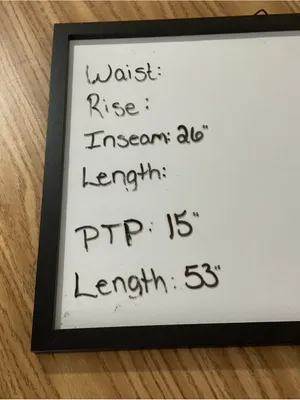 Waist:
Rise:
Inseam: 26"
Length:
PTP: 15"
Length: 53"